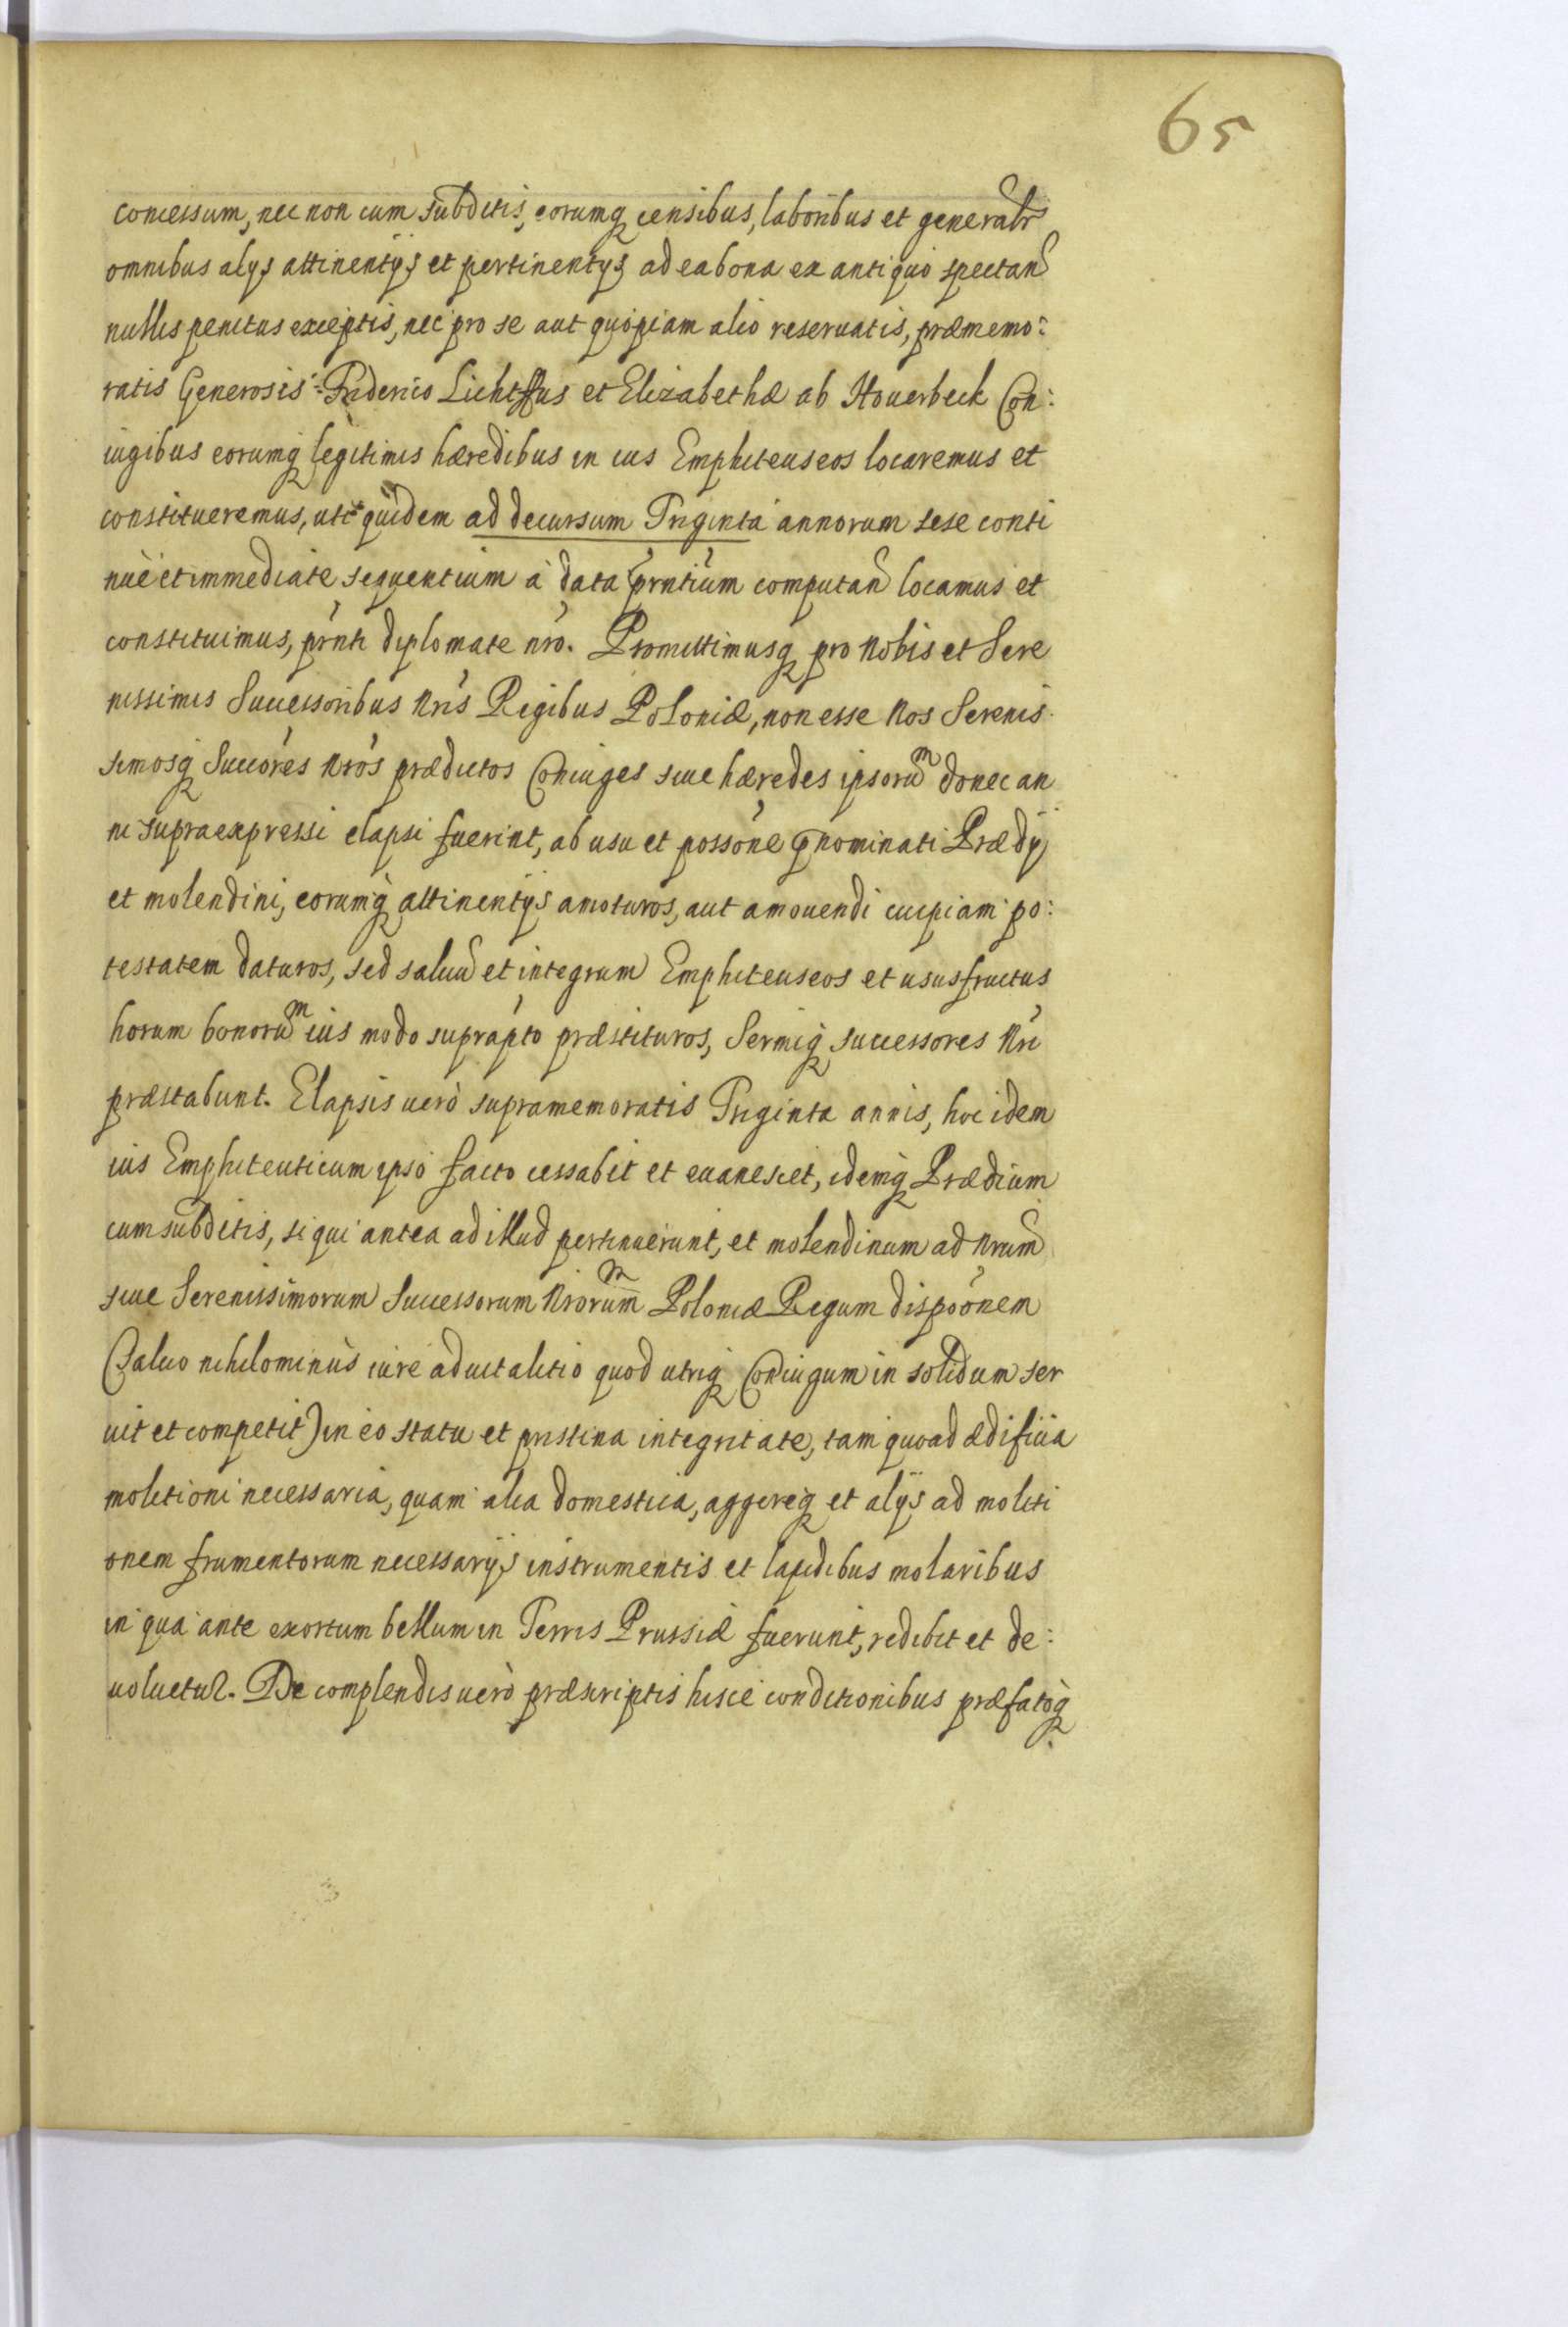 65
concessum, nec non cum subditis, eorumq censibus, laboribus et generalr
omnibus alys attinentÿs et pertinentys ad ea bona ex antiquo spectan
nullis penitus exceptis, nec pro se aut quopiam alio reseruatis, præmemo:
ratis Generosis Friderico et Elizabethæ ab Houerbeck Con:
iugibus eorumq legitimis hæredibus in ius Emphiteuseos locaremus et
constitueremus, uti quidem ad decursum Triginta annorum sese conti
nuè et immediate sequentium à data prntium computan locamus et
constituimus, prnti diplomate nro. Promittimusq pro Nobis et Sere
nissimis Successoribus Nris Regibus Poloniæ, non esse Nos Serenis
simosq Succores Nros prædictos Coniuges siue hæredes ipsorum donec an
ni supraexpressi elapsi fuerint, ab usu et possone prænominati Prædÿ
et molendini, eorumq attinentÿs amoturos, aut amouendi cuipiam po:
testatem daturos, sed saluu et integrum Emphiteuseos et ususfructus
horum bonorum ius modo suprapto præstituros, Sermiq successores Nri
præstabunt. Elapsis uerò supramemoratis Triginta annis, hoc idem
ius Emphiteuticum ipso facto cessabit et euanescet, idemq Prædium
cum subditis, si qui antea ad illud pertinuerunt, et molendinum ad Nram
siue Serenissimorum Successorum Nrorum Poloniæ Regum dispoonem
(Saluo nihilominùs iure aduitalitio quod utriq Coniugum in solidum ser
uit et competit) in eo statu et pristina integritate, tam quoad ædificia
molitioni necessaria, quam alia domestica, aggereq et alÿs ad moliti
onem frumentorum necessarÿs instrumentis et lapidibus molaribus
in qua ante exortum bellum in Terris Prussiæ fuerunt, redibit et de:
uoluetur. De complendis uerò præscriptis hisce conditionibus præfatoq